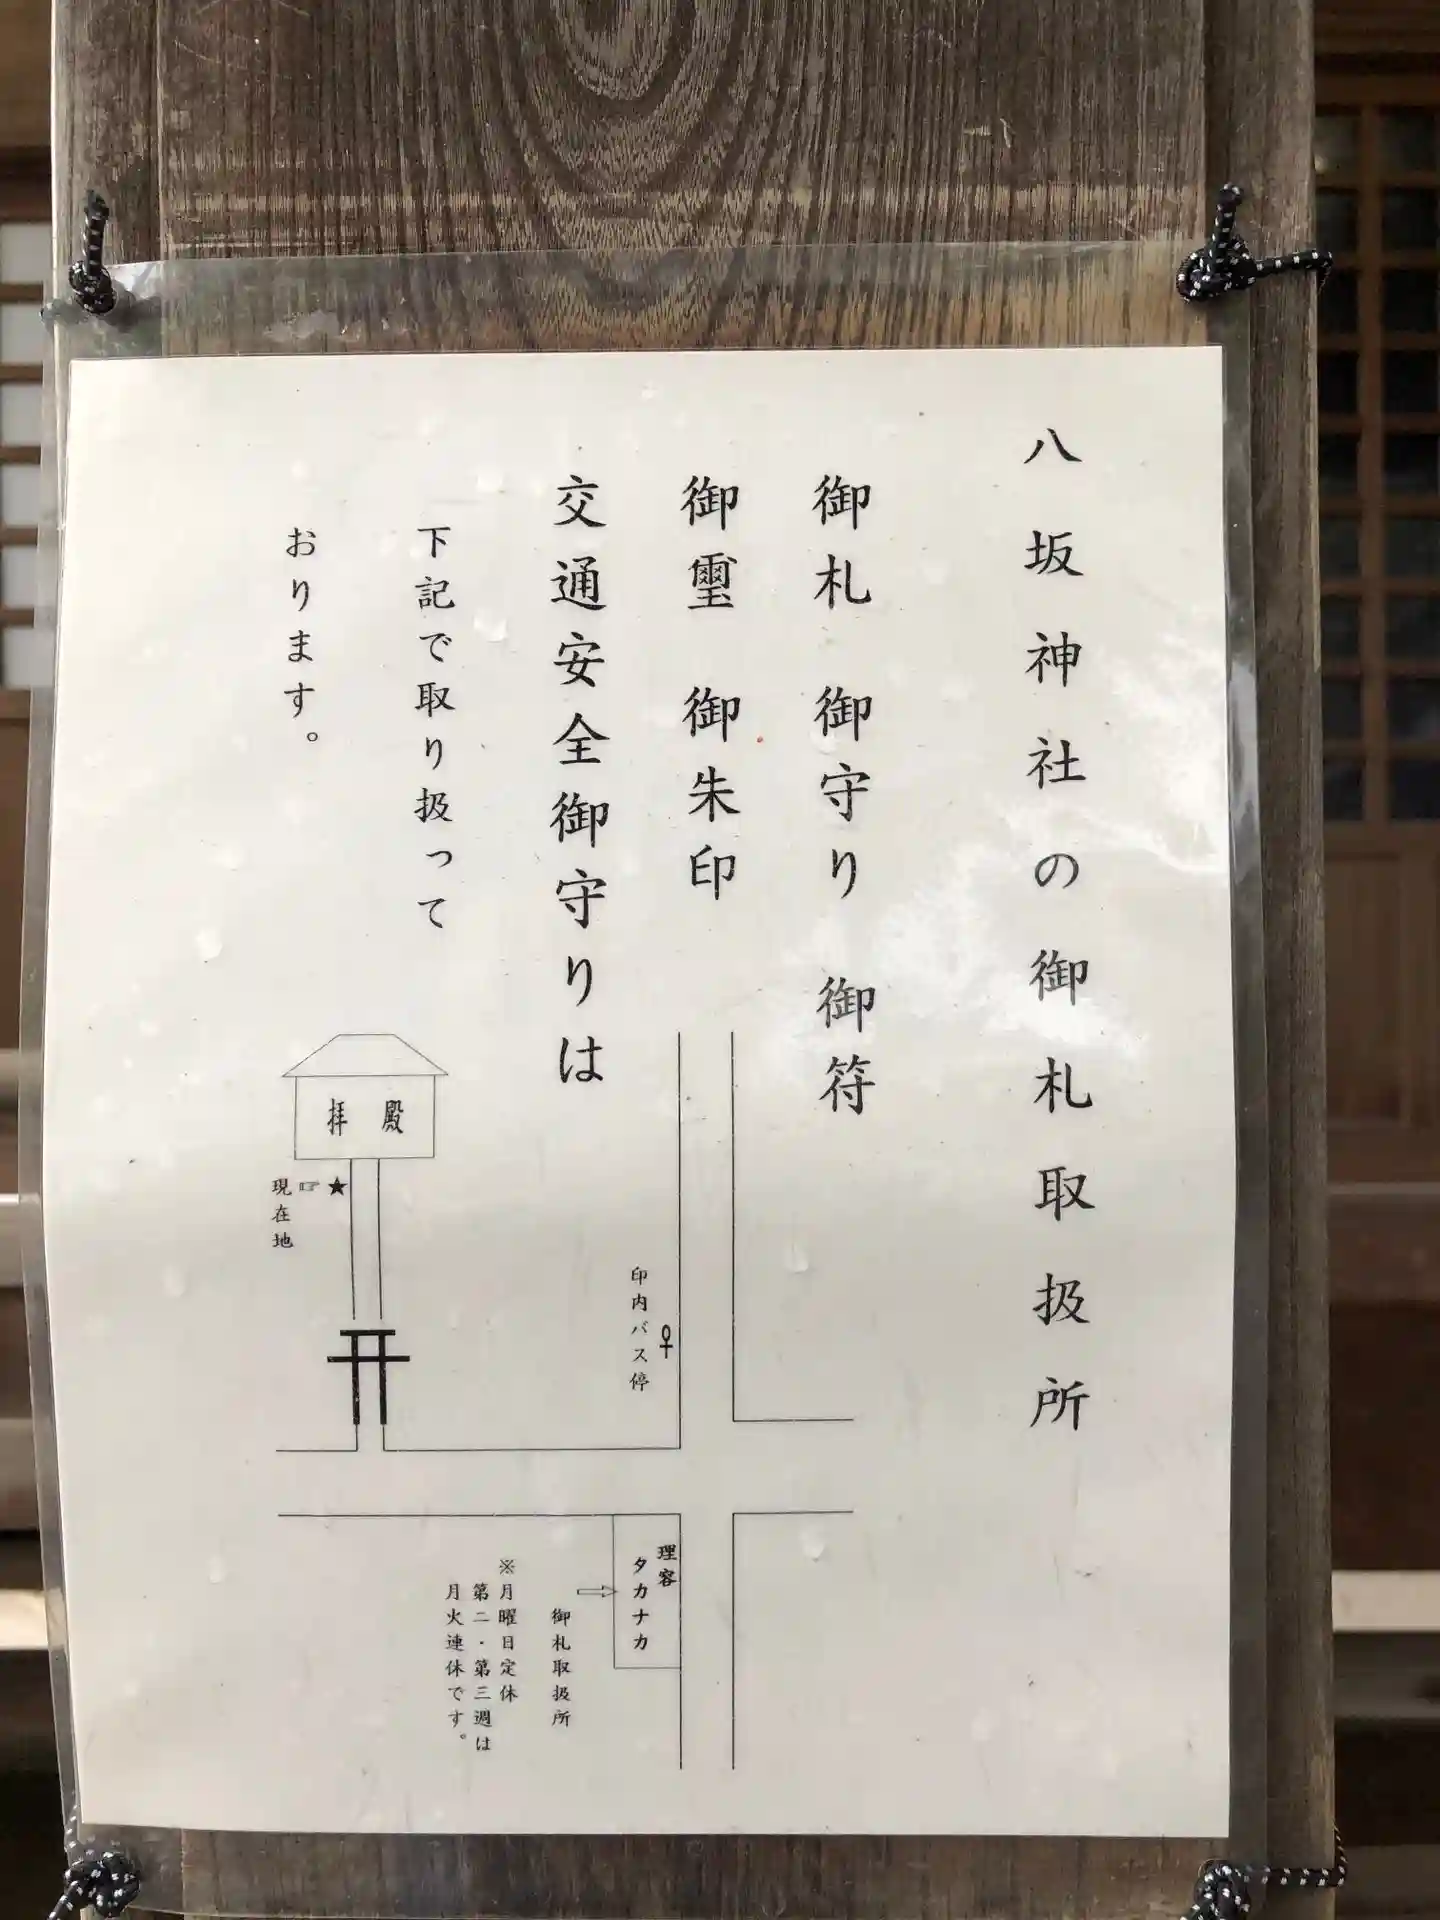 八坂神社の御札取扱所
御札　御守り　御符
御璽　御朱印
交通安全御守りは
下記で取り扱って
おります。
拝殿
☞★
現在地
印内バス停
理容
タカナカ
⇨
御札取扱所
※月曜日定休
第二・第三週は
月火連休です。